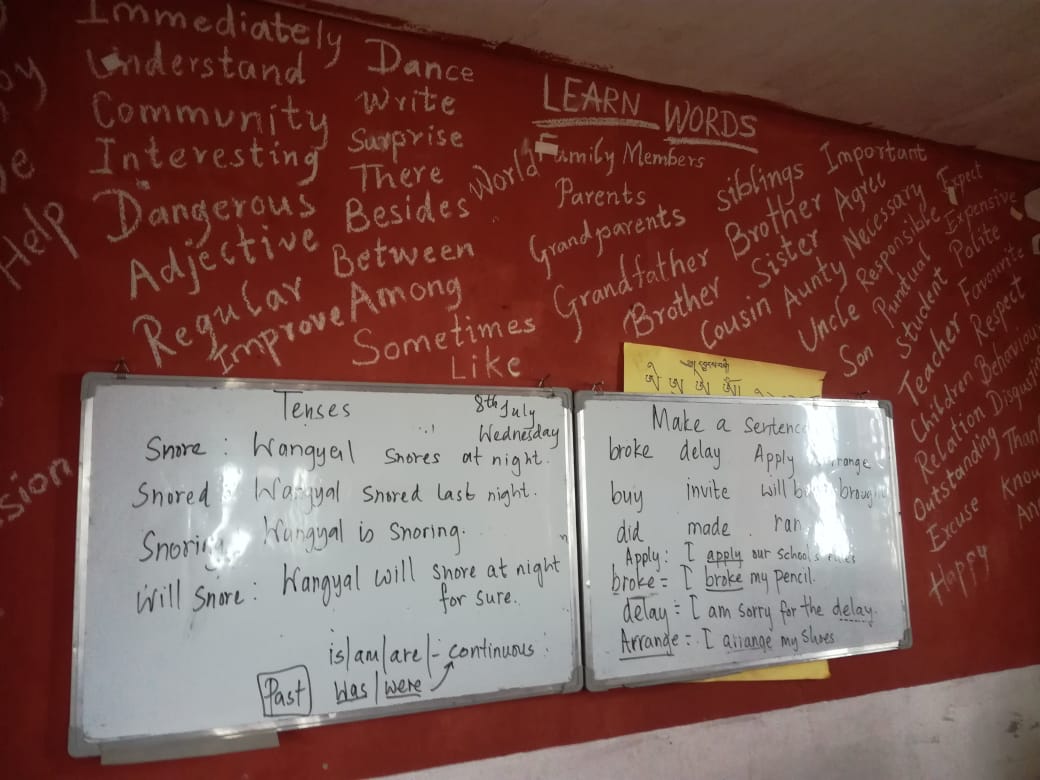 Immediately
Understand
Community
Interesting
Dangerous
Adjective
Regular
Improve
Help
Dance
Write
Surprise
There
Besides
Between
Among
Sometimes
Like
World
LEARN WORDS
Family Members
Parents
Grandparents
Grandfather
Brother
siblings
Brother
Sister
Cousin Aunty
Uncle
Son
Important
Agree
Necessary
Responsible
Punctual
Student
Teacher
Children
Relation
Outstanding
Excuse
Happy
Expect
Expensive
Polite
Favourite
Respect
Behaviour
Tenses
8th July
Wednesday
Snore : Wangyal snores at night.
Snored : Wangyal snored last night.
Snoring Wangyal is snoring.
Will Snore : Wangyal will snore at night
for sure.
is/am/are/- continuous
Past was/were
Make a sentence
broke delay Apply
buy invite will
did made ran
Apply : I apply our school's rules
broke = I broke my pencil.
delay = I am sorry for the delay.
Arrange = I arrange my shoes